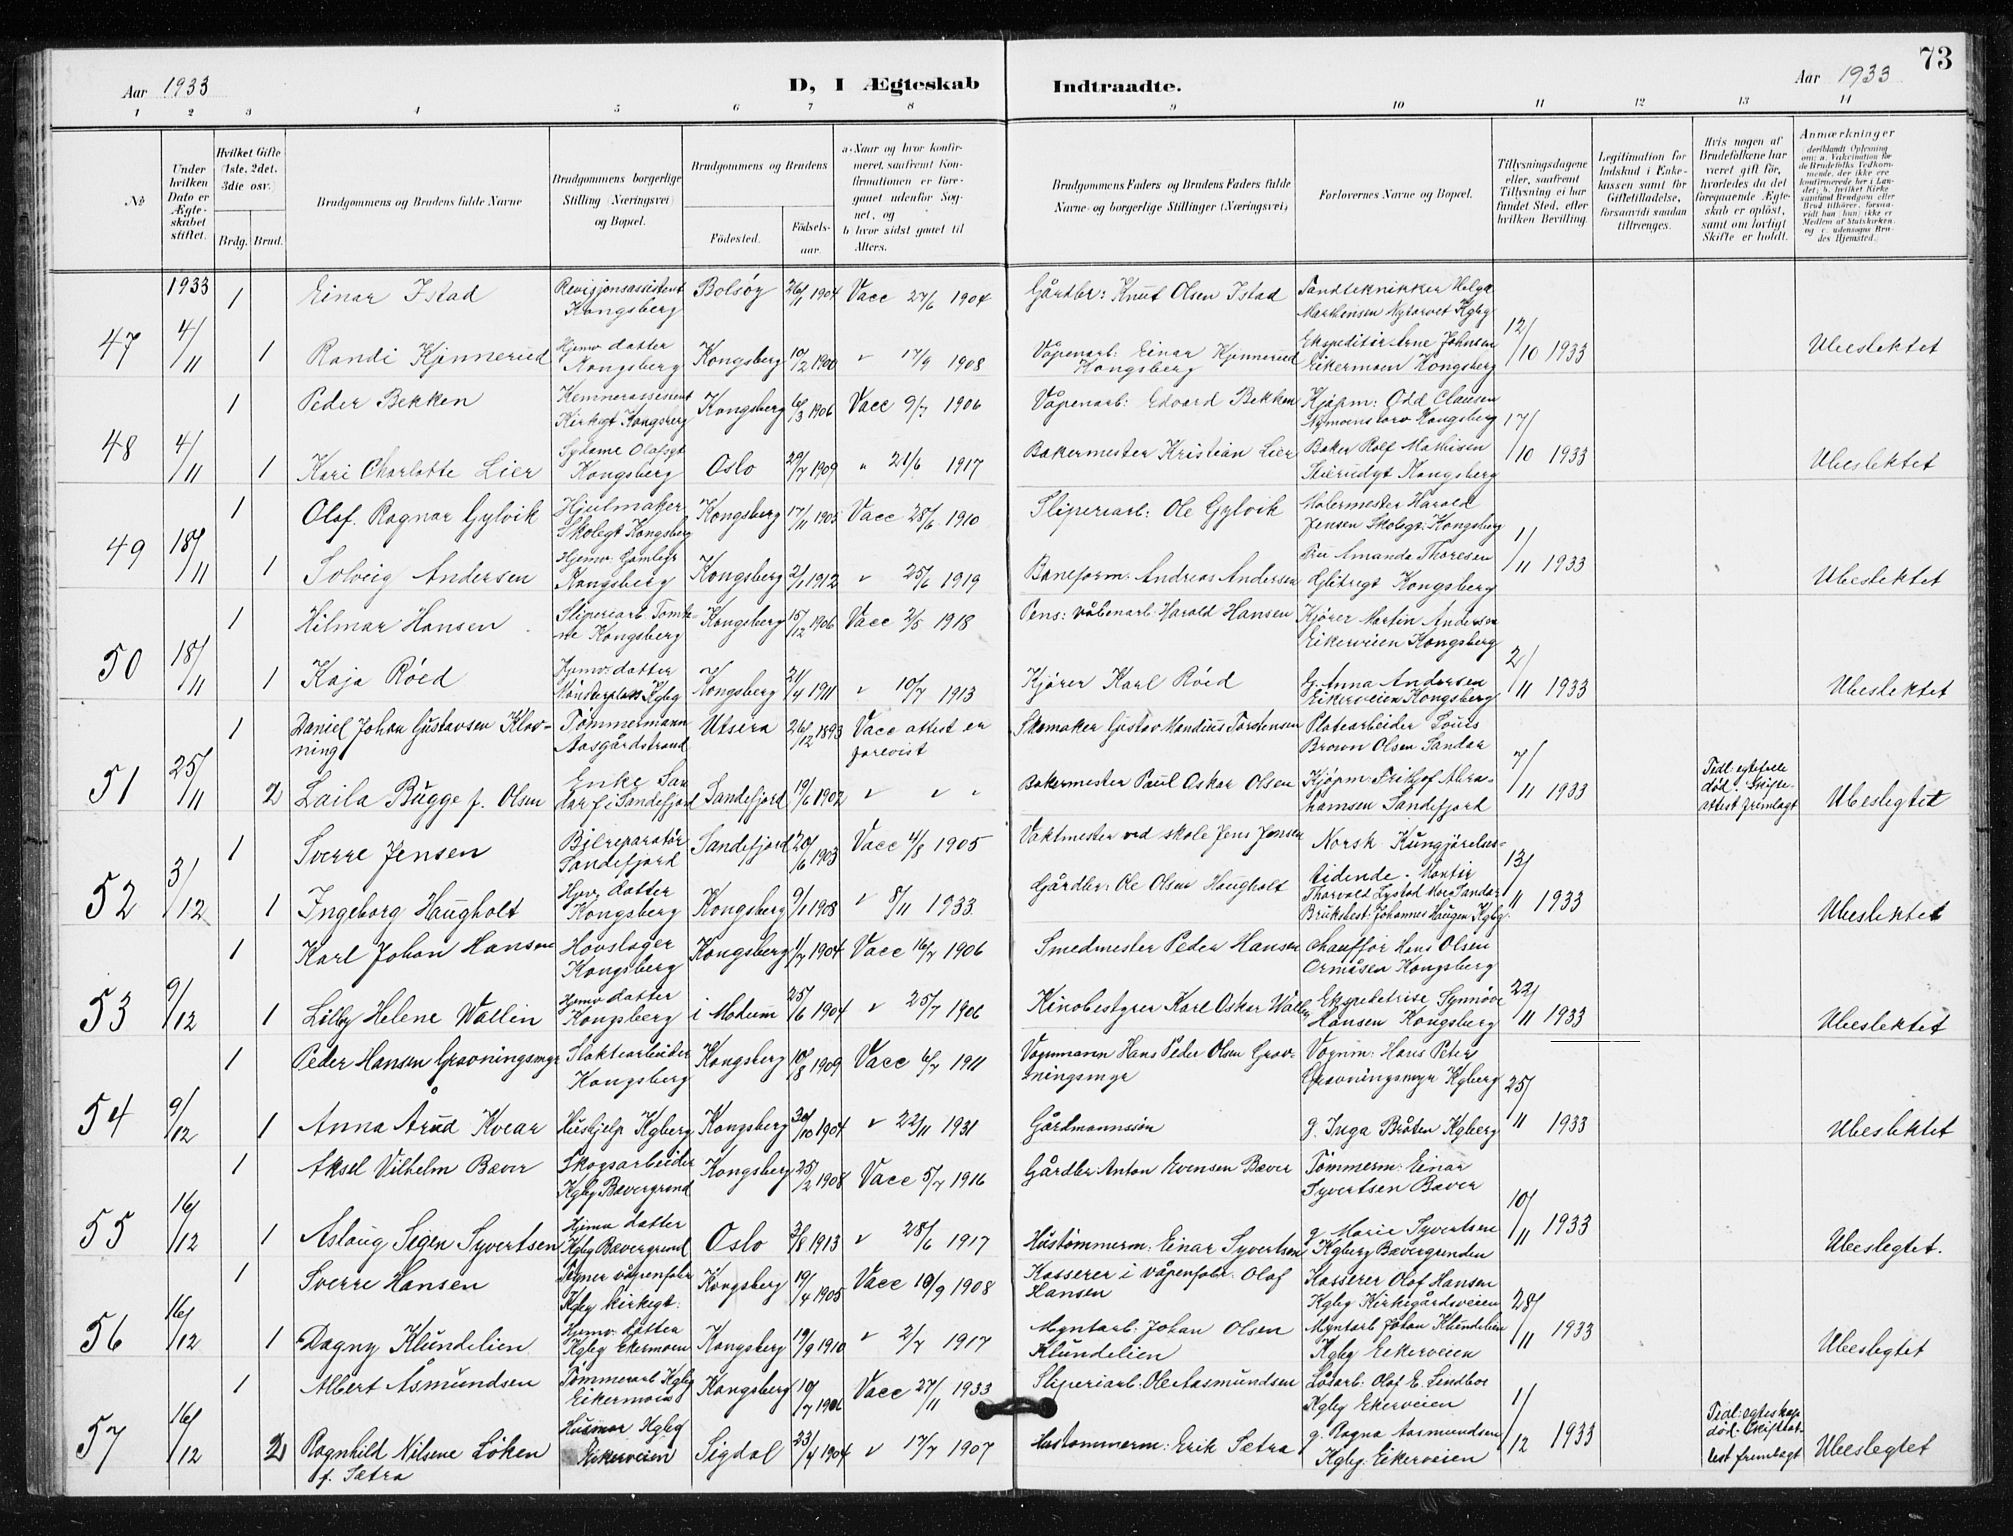 73
Aar 1933
D, I Ægteskab
Indtraadte.
Aar 1933
1 2 3 4 5 6 7 8 9 10 11 12 13 14
No
Under hvilken Dato er Ægteskabet stiftet.
Hvilket Gifte (1ste, 2det, 3die osv.)
Brdg. Brud.
Brudgommens og Brudens fulde Navne
Brudgommens borgerlige Stilling (Næringsvei) og Bopæl.
Brudgommens og Brudens
Fødested. Fødselsaar.
a. Naar og hvor konfirmeret, saafremt Konfirmationen er foregaaet udenfor Sognet, og
b. hvor sidst gaaet til Alters.
Brudgommens Faders og Brudens Faders fulde Navne og borgerlige Stillinger (Næringsvei)
Forlovernes Navne og Bopæl.
Tillysningsdagene eller, saafremt Tillysning ei har fundet Sted, efter hvilken Bevilling.
Legitimation for Indskud i Enkekassen samt for Giftetilladelse, forsaavidt saadan tiltrænges.
Hvis nogen af Brudefolkene har været gift før, hvorledes da det foregaaende Ægteskab er opløst, samt om lovligt Skifte er holdt.
Anmærkninger
1933 1 Einar Istad Revisjonsassistent Kongsberg Bolsøy 26/1 1904 Vacc 27/6 1904 Gårdbr: Knut Olsen Istad Tandtekniker Helga Marthensen Nytorvet Kgbg
47 4/11 1 Randi Kjennerud Hjemv datter Kongsberg Kongsberg 10/2 1900 " 17/9 1908 Våpenarb: Einar Kjennerud Kongsberg Ekspeditør Arne Johnsen Eikermoen Kongsberg 12/10 1933 Ubeslektet
1 Peder Bekken Kemnerassistent Kirkegt Kongsberg Kongsberg 6/3 1906 Vacc 9/7 1906 Våpenarb: Edvard Bekken Kjøpm: Odd Clausen Nymoenstorv Kongsberg
48 4/11 1 Kari Charlotte Lier Sydame Olafsgt Kongsberg Oslo 29/7 1909 " 21/6 1917 Bakermester Kristian Lier Baker Rolf Mathisen Kongsberg 17/10 1933 Ubeslektet
1 Olaf Ragnar Gylvik Hjulmaker Skolegt Kongsberg Kongsberg 17/11 1905 Vacc 28/6 1910 Sliperiarb: Ole Gylvik Malermester Harald Jensen Skolegt: Kongsberg
49 18/11 1 Solveig Andersen Hjemv Gamlegr Kongsberg Kongsberg 2/1 1912 " 25/6 1919 Baneform: Andreas Andersen Fru Amanda Thoresen Glitregt Kongsberg 1/11 1933 Ubeslektet
1 Hilmar Hansen Sliperiarb Kongsberg Kongsberg 15/12 1906 Vacc 2/5 1918 Pens: våbenarb: Harald Hansen Kjører Martin Andersen Eikerveien Kongsberg
50 18/11 1 Kaja Röed Hjemv. datter Kgbg Kongsberg 21/4 1911 " 10/7 1913 Kjører Karl Röed G. Anna Andersen Eikerveien Kongsberg 2/11 1933 Ubeslektet
1 Daniel Johan Gustavsen Klovning Tømmermann Aasgårdstrand Utsira 26/12 1893 Vacc attest er forevist Skomaker Gustav Mandius Torstensen Platearbeider Louis Brown Olsen Sandar
51 25/11 2 Laila Bugge f. Olsen Enke Sandar f. i Sandefjord Sandefjord 19/6 1902 " " " Bakermester Paul Oskar Olsen Kjøpm: Frithjof Abrahamsen Sandefjord 7/11 1933 Tidl: ektefelle død. Skifteattest fremlagt Ubeslegtet
1 Sverre Jensen Bilreparatør Sandefjord Sandefjord 20/6 1903 Vacc 4/8 1905 Vaktmester ved skole Jens Jensen Norsk Kungjørelsestidende. Montør
52 3/12 1 Ingeborg Haugholt Hjv. datter Kongsberg Kongsberg 9/1 1908 " 8/11 1933 Gårdbr: Ole Olsen Haugholt Thorvald Lystad Sandar Bruksbest: Johannes Haugen Kgbg: 13/11 1933 Ubeslektet
1 Karl Johan Hansen Hovslager Kongsberg Kongsberg 1/7 1904 Vacc 16/7 1906 Smedmester Peder Hansen Chauffør Hans Olsen Ormåsen Kongsberg
53 9/12 1 Lølby Helene Wallin Hjemv datter Kongsberg i Modum 25/6 1904 " 25/7 1906 Kinobestyrer Karl Oskar Wallin Ekspeditrise Synnøve Hansen Kongsberg 22/11 1933 Ubeslektet
1 Peder Hansen Gravningsmyr Slaktearbeider Kongsberg Kongsberg 10/8 1909 Vacc 6/7 1911 Vognmann Hans Peder Olsen Gravningsmyr Vognm: Hans Peter Gravningsmyr Kgberg
54 9/12 1 Anna Årud Kvear Hushjelp Kgberg Kongsberg 30/10 1904 " 22/11 1931 Gårdmannssøn g. Inga Bråten Kgberg 25/11 1933 Ubeslektet
1 Aksel Vilhelm Bæver Skogsarbeider Kgbg Bævergrend Kongsberg 25/2 1908 Vacc 5/7 1916 Gårdbr Anton Evensen Bæver Tømmerm: Einar Syvertsen Bæver
55 16/12 1 Aslaug Signe Syvertsen Hjemv datter Kgbg Bævergrend Oslo 3/8 1913 " 28/6 1917 Hustømmerm: Einar Syvertsen g. Marie Syvertsen Kgberg Bævergrenden 10/11 1933 Ubeslegtet.
1 Sverre Hansen Tegner våpenfabr Kgbg Kirkegt: Kongsberg 19/4 1905 Vacc 10/9 1908 Kasserer i våpenfabr: Olaf Hansen Kasserer Olaf Hansen Kgbg Kirkegårdsveien
56 16/12 1 Dagny Klundelien Hjemv: datter Kgbg Ekermoen Kongsberg 19/9 1910 " 2/7 1917 Myntarb: Johan Olsen Klundelien Myntarb Johan Klundelien Kgbg Eikerveien 28/11 1933 Ubeslegtet
1 Albert Åsmundsen Tømmerarb Kgbg Eikermoen Kongsberg 10/7 1906 Vacc 27/11 1933 Sliperiarb: Ole Aasmundsen Løsarb: Olaf E. Lindboe Kgbg Eikerveien
57 16/12 2 Ragnhild Nilsene Løken f. Sætra Husmor Kgbg Eikerveien Sigdal 23/4 1904 " 17/7 1907 Hustømmerm: Erik Sætra g. Ragna Aasmundsen Kgbg: Eikerveien 1/12 1933 Tidl: egteskap død. Skifteattest fremlagt Ubeslegtet